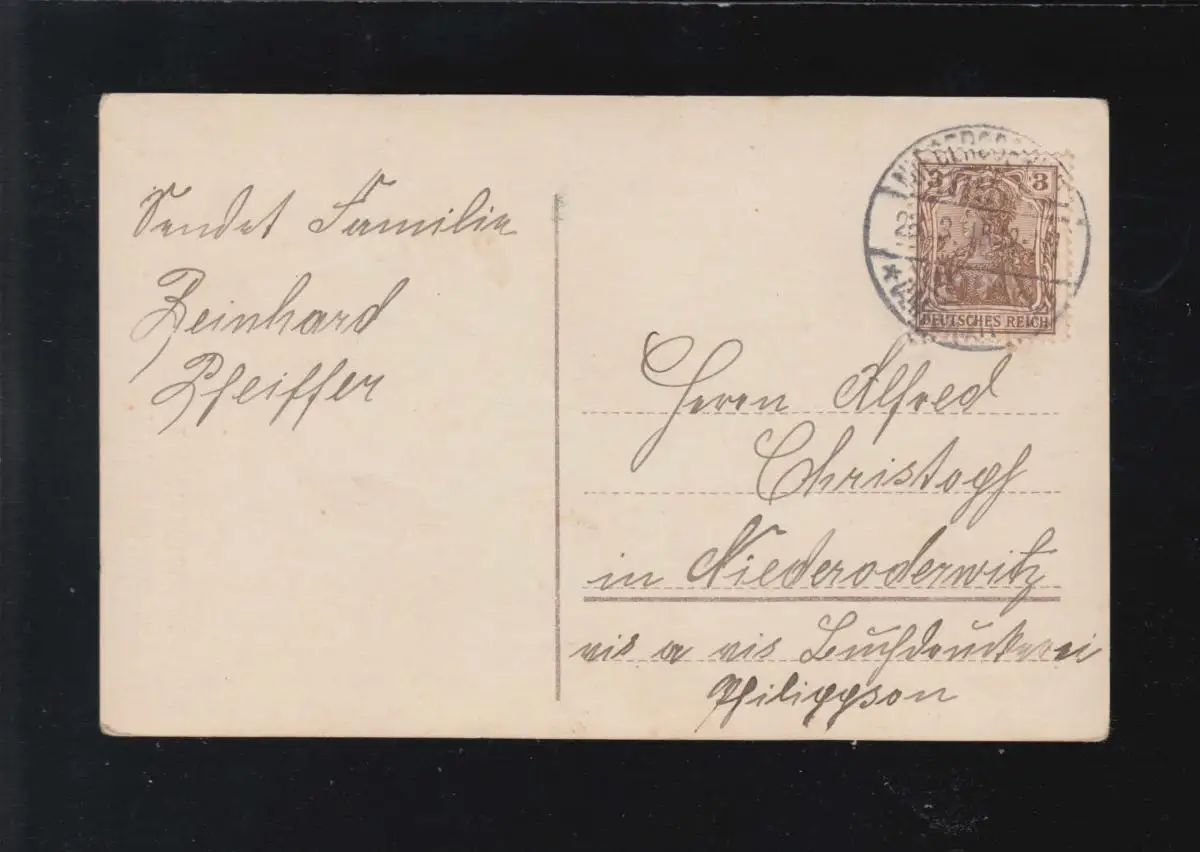 Sendet Familie
Reinhard
Pfeiffer
3 3
DEUTSCHES REICH
Herrn Alfred
Christoph
in Niederoderwitz
vis a vis Buchdruckerei
Philippson